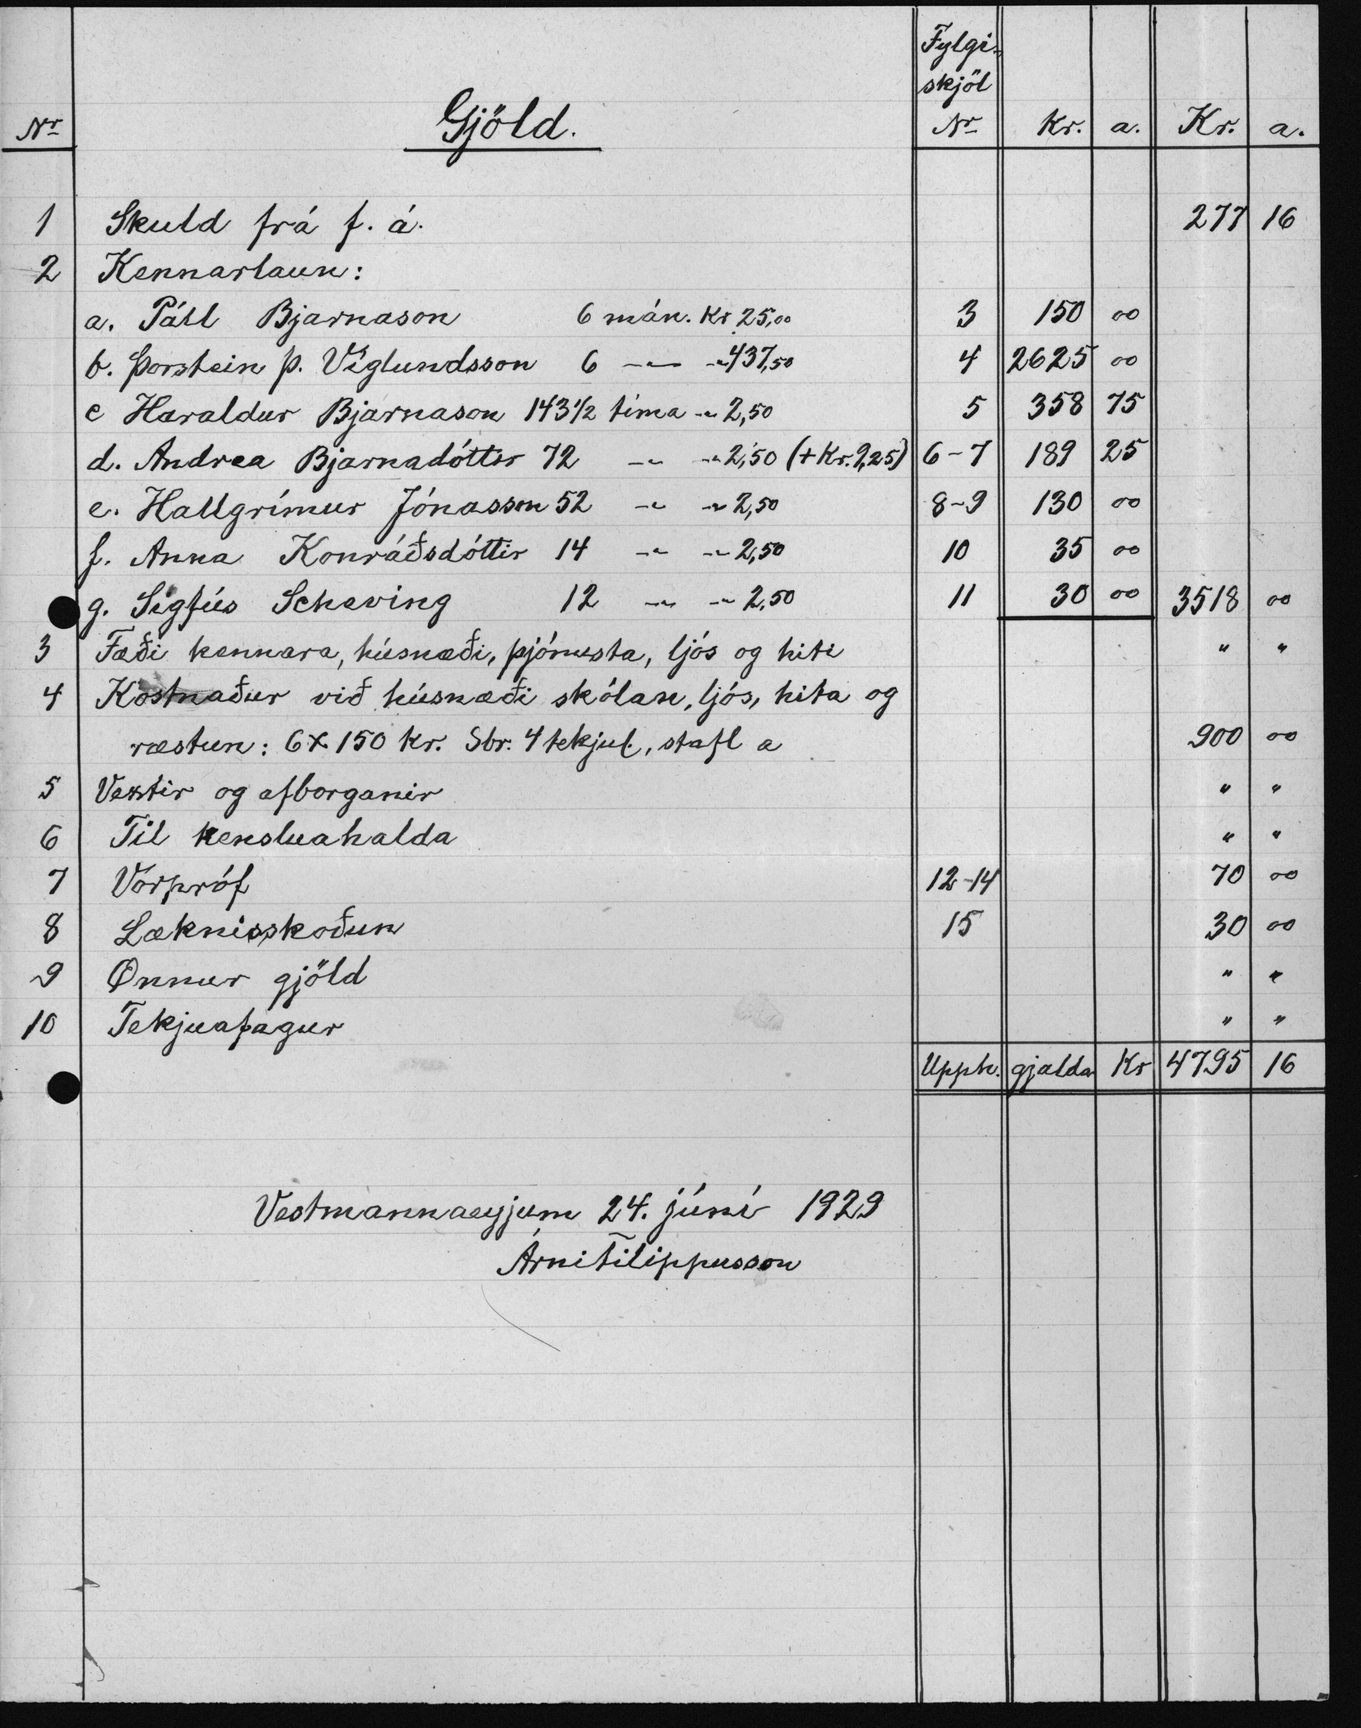 Fylgi-
skjöl
Nr Gjöld. Nr Kr. a. Kr. a.
1 Skuld frá f. á. 277 16
2 Kennarlaun:
a. Páll Bjarnason 6 mán. Kr 25,00 3 150 00
b. Þorstein Þ. Víglundsson 6 -"- -"- 437,50 4 2625 00
c Haraldur Bjarnason 143 1/2 tíma -"- 2,50 5 358 75
d. Andrea Bjarnadóttir 72 -"- -"- 2,50 (+Kr. 9,25) 6-7 189 25
e. Hallgrímur Jónasson 52 -"- -"- 2,50 8-9 130 00
f. Anna Konráðsdóttir 14 -"- -"- 2,50 10 35 00
g. Sigfús Scheving 12 -"- -"- 2,50 11 30 00 3518 00
3 Fæði kennara, húsnæði, þjónusta, ljós og hiti " "
4 Kostnaður við húsnæði skólan, ljós, hita og
ræstun: 6 x 150 Kr. Sbr. 4 tekjul., stafl a 900 00
5 Vextir og afborganir " "
6 Til kensluahalda " "
7 Vorpróf 12-14 70 00
8 Læknisskoðun 15 30 00
9 Önnur gjöld " "
10 Tekjuafagur " "
Upph. gjalda Kr 4795 16
Vestmannaeyjum 24. júní 1929
Árni Filippusson